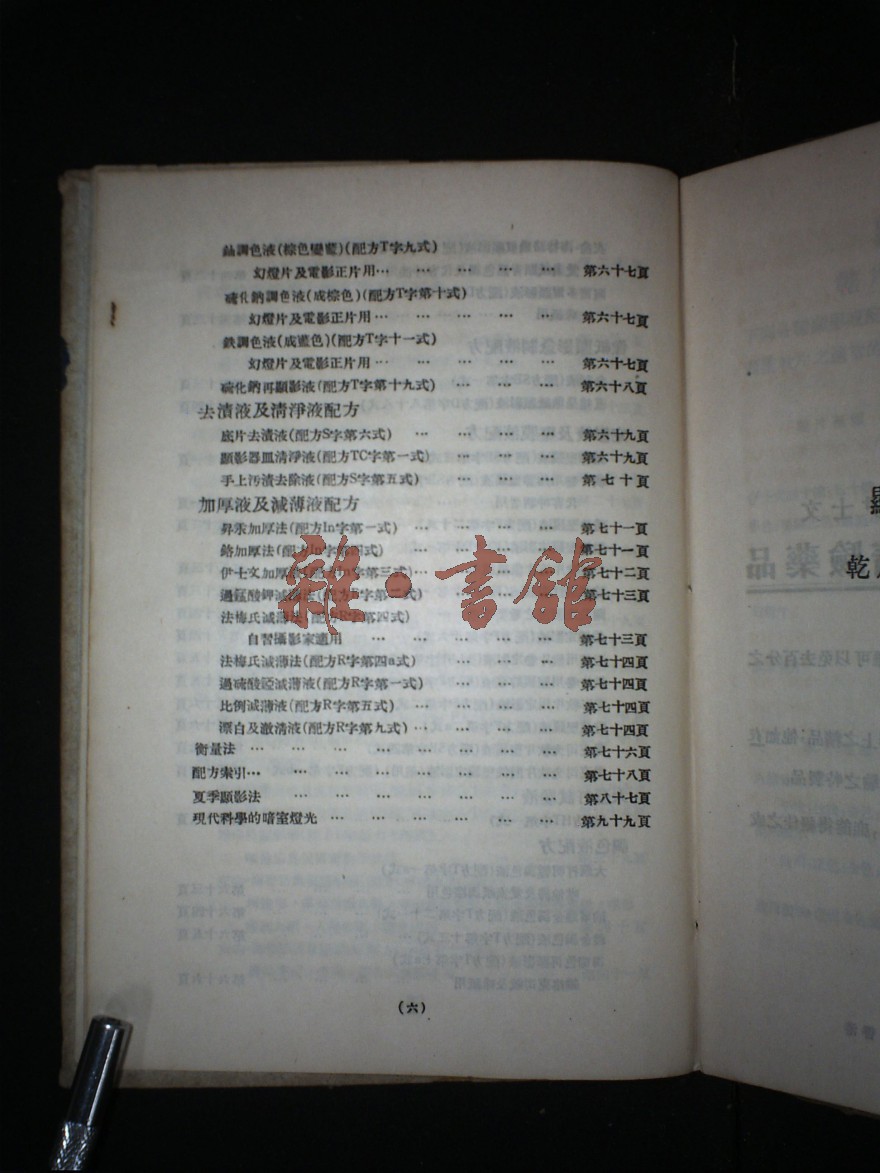 鈾調色液(棕色變藍)(配方T字九式)
幻燈片及電影正片用… … … … … 第六十七頁
硫化鈉調色液(成棕色)(配方T字第十式)
幻燈片及電影正片用… … … … … 第六十七頁
鉄調色液(成藍色)(配方T字十一式)
幻燈片及電影正片用… … … … … 第六十七頁
硫化鈉再顯影液(配方T字第十九式) … … … 第六十八頁
去漬液及清淨液配方
底片去漬液(配方S字第六式) … … … … 第六十九頁
顯影器皿清淨液(配方TC字第一式) … … … 第六十九頁
手上污漬去除液(配方S字第五式) … … … 第七十頁
加厚液及減薄液配方
昇汞加厚法(配方In字第一式) … … … … 第七十一頁
鉻加厚法(配方In字第四式) … … … … 第七十一頁
伊士文加厚 第三式) … … … 第七十二頁
過錳酸鉀減薄法(配方R字第二式) … … … 第七十三頁
法梅氏減薄法(配方R字第四式)
自習攝影家適用 … … … … … 第七十三頁
法梅氏減薄法(配方R字第四a式) … … … 第七十四頁
過硫酸 減薄液(配方R字第一式) … … … 第七十四頁
比例減薄液(配方R字第五式) … … … 第七十四頁
漂白及澈清液(配方R字第九式)… … … … 第七十四頁
衡量法 … … … … … … … … 第七十六頁
配方索引… … … … … … … … 第七十八頁
夏季顯影法 … … … … … … … 第八十七頁
現代科學的暗室燈光 … … … … … … 第九十九頁
(六)
雜·書館